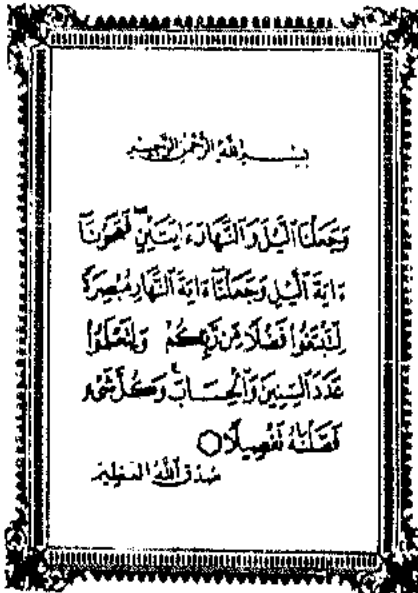 بِسْمِ اللَّهِ الرَّحْمَٰنِ الرَّحِيمِ
وَجَعَلْنَا ٱلَّيْلَ وَٱلنَّهَارَ ءَايَتَيْنِ فَمَحَوْنَآ
ءَايَةَ ٱلَّيْلِ وَجَعَلْنَآ ءَايَةَ ٱلنَّهَارِ مُبْصِرَةً
لِّتَبْتَغُوا۟ فَضْلًا مِّن رَّبِّكُمْ وَلِتَعْلَمُوا۟
عَدَدَ ٱلسِّنِينَ وَٱلْحِسَابَ وَكُلَّ شَىْءٍ
فَصَّلْنَٰهُ تَفْصِيلًا
صدق الله العظيم